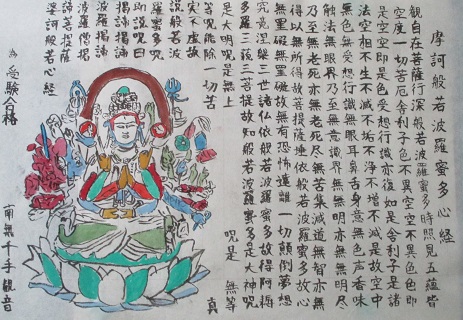 摩訶般若波羅蜜多心経
観自在菩薩行深般若波羅蜜多時照見五蘊皆
空度一切苦厄舎利子色不異空空不異色色即
是空空即是色受想行識亦復如是舎利子是諸
法空相不生不滅不垢不浄不増不減是故空中
無色無受想行識無眼耳鼻舌身意無色声香味
触法無眼界乃至無意識界無無明亦無無明尽
乃至無老死亦無老死尽無苦集滅道無智亦無
得以無所得故菩提薩埵依般若波羅蜜多故心
無罣礙無罣礙故無有恐怖遠離一切顛倒夢想
究竟涅槃三世諸仏依般若波羅蜜多故得阿耨
多羅三藐三菩提故知般若波羅蜜多是大神呪
是大明呪是無上 呪是 無等
等呪能除一切苦 真
実不虚故
説般若波
羅蜜多呪
即説呪曰
羯諦羯諦
波羅羯諦
波羅僧羯
諦菩提薩
婆訶般若心経
為 受験合格
南無千手観音